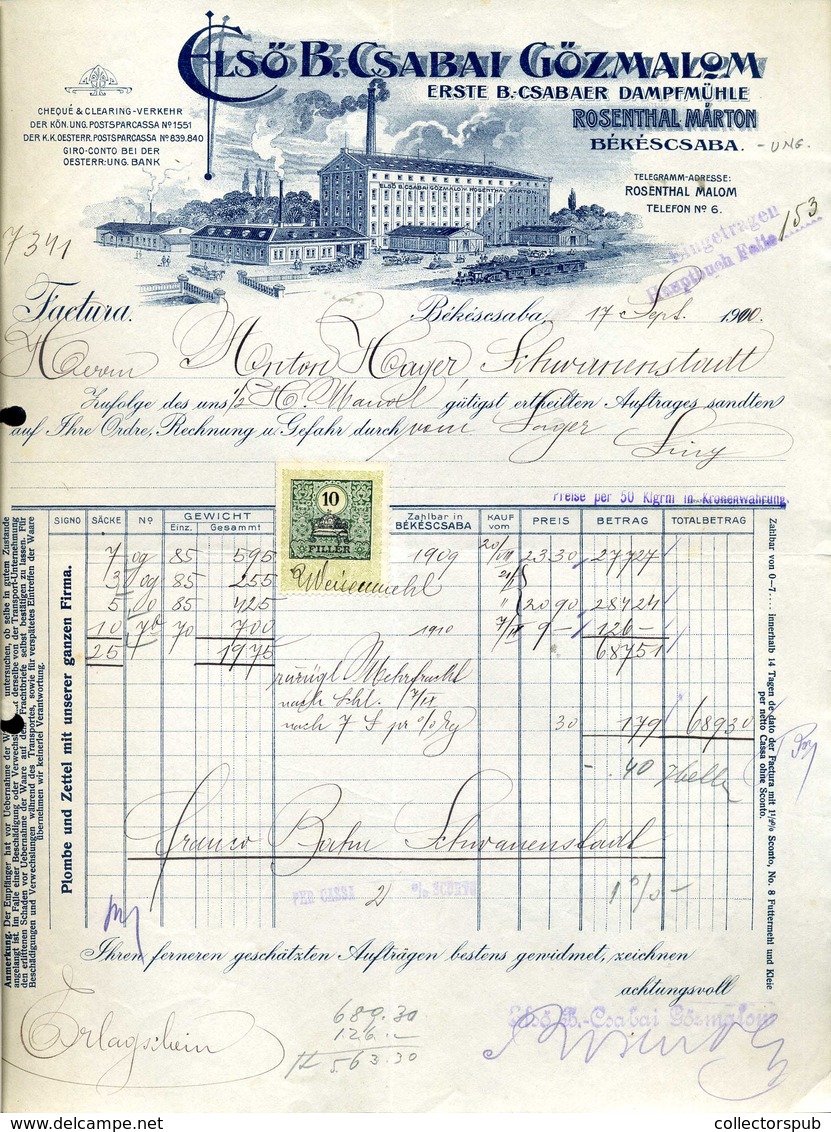 ELSŐ B. CSABAI GŐZMALOM
ERSTE B.-CSABAER DAMPFMÜHLE
ROSENTHAL MÁRTON
BÉKÉSCSABA. - UNG.
CHEQUÉ & CLEARING-VERKEHR
DER KÖN. UNG. POSTSPARCASSA No 1551
DER K. K. OESTERR. POSTSPARCASSA No 839.840
GIRO-CONTO BEI DER
OESTERR.-UNG. BANK
ELSŐ B. CSABAI GŐZMALOM ROSENTHAL MÁRTON
TELEGRAMM-ADRESSE:
ROSENTHAL MALOM
TELEFON No 6.
7341
Eingetragen
Hauptbuch Folio 153
Factura. Békéscsaba, 17 Sept. 1910.
Herrn Anton Hager, Schwanenstadt
Zufolge des uns gütigst ertheilten Auftrages sandten
auf Ihre Ordre, Rechnung u. Gefahr durch vom Lager
Linz
Preise per 50 Klgrm in Kronenwährung.
SIGNO SÄCKE No GEWICHT Einz. Gesammt Zahlbar in BÉKÉSCSABA KAUF vom PREIS BETRAG TOTALBETRAG
10
FILLER
7 og 85 595 1909 23.30 277 27
Weisenmehl
3 og 85 255
5 0 85 425 " 20 90 284 24
10 70 700 1910 9 - 126 -
25 1975 687 51
zuzügl Mehrfracht
nach
nach 7 30 1 79 689 30
- .40 Heller
Franco Bahn Schwanenstadt
PER CASSA 2 % SCONTO
1 % -
Plombe und Zettel mit unserer ganzen Firma.
Anmerkung. Der Empfänger hat vor Uebernahme der untersuchen, ob selbe in gutem Zustande
angelangt ist. Im Falle einer Beschädigung oder Verwechslung derselbe von der Transport-Unternehmung
den erlittenen Schaden vor Uebernahme der Waare auf dem Frachtbriefe selbst bestätigen zu lassen. Für
Beschädigungen und Verwechslungen während des Transportes, sowie für verspätetes Eintreffen der Waare
übernehmen wir keinerlei Verantwortung.
Zahlbar von 0-7 .... innerhalb 14 Tagen de dato der Factura mit 1½% Sconto, No. 8 Futtermehl und Kleie
per netto Cassa ohne Sconto.
Ihren ferneren geschätzten Aufträgen bestens gewidmet, zeichnen
achtungsvoll
Első B.-Csabai Gőzmalom
Erlagschein
689.30
126.-
563.30
delcampe.net
collectorspub